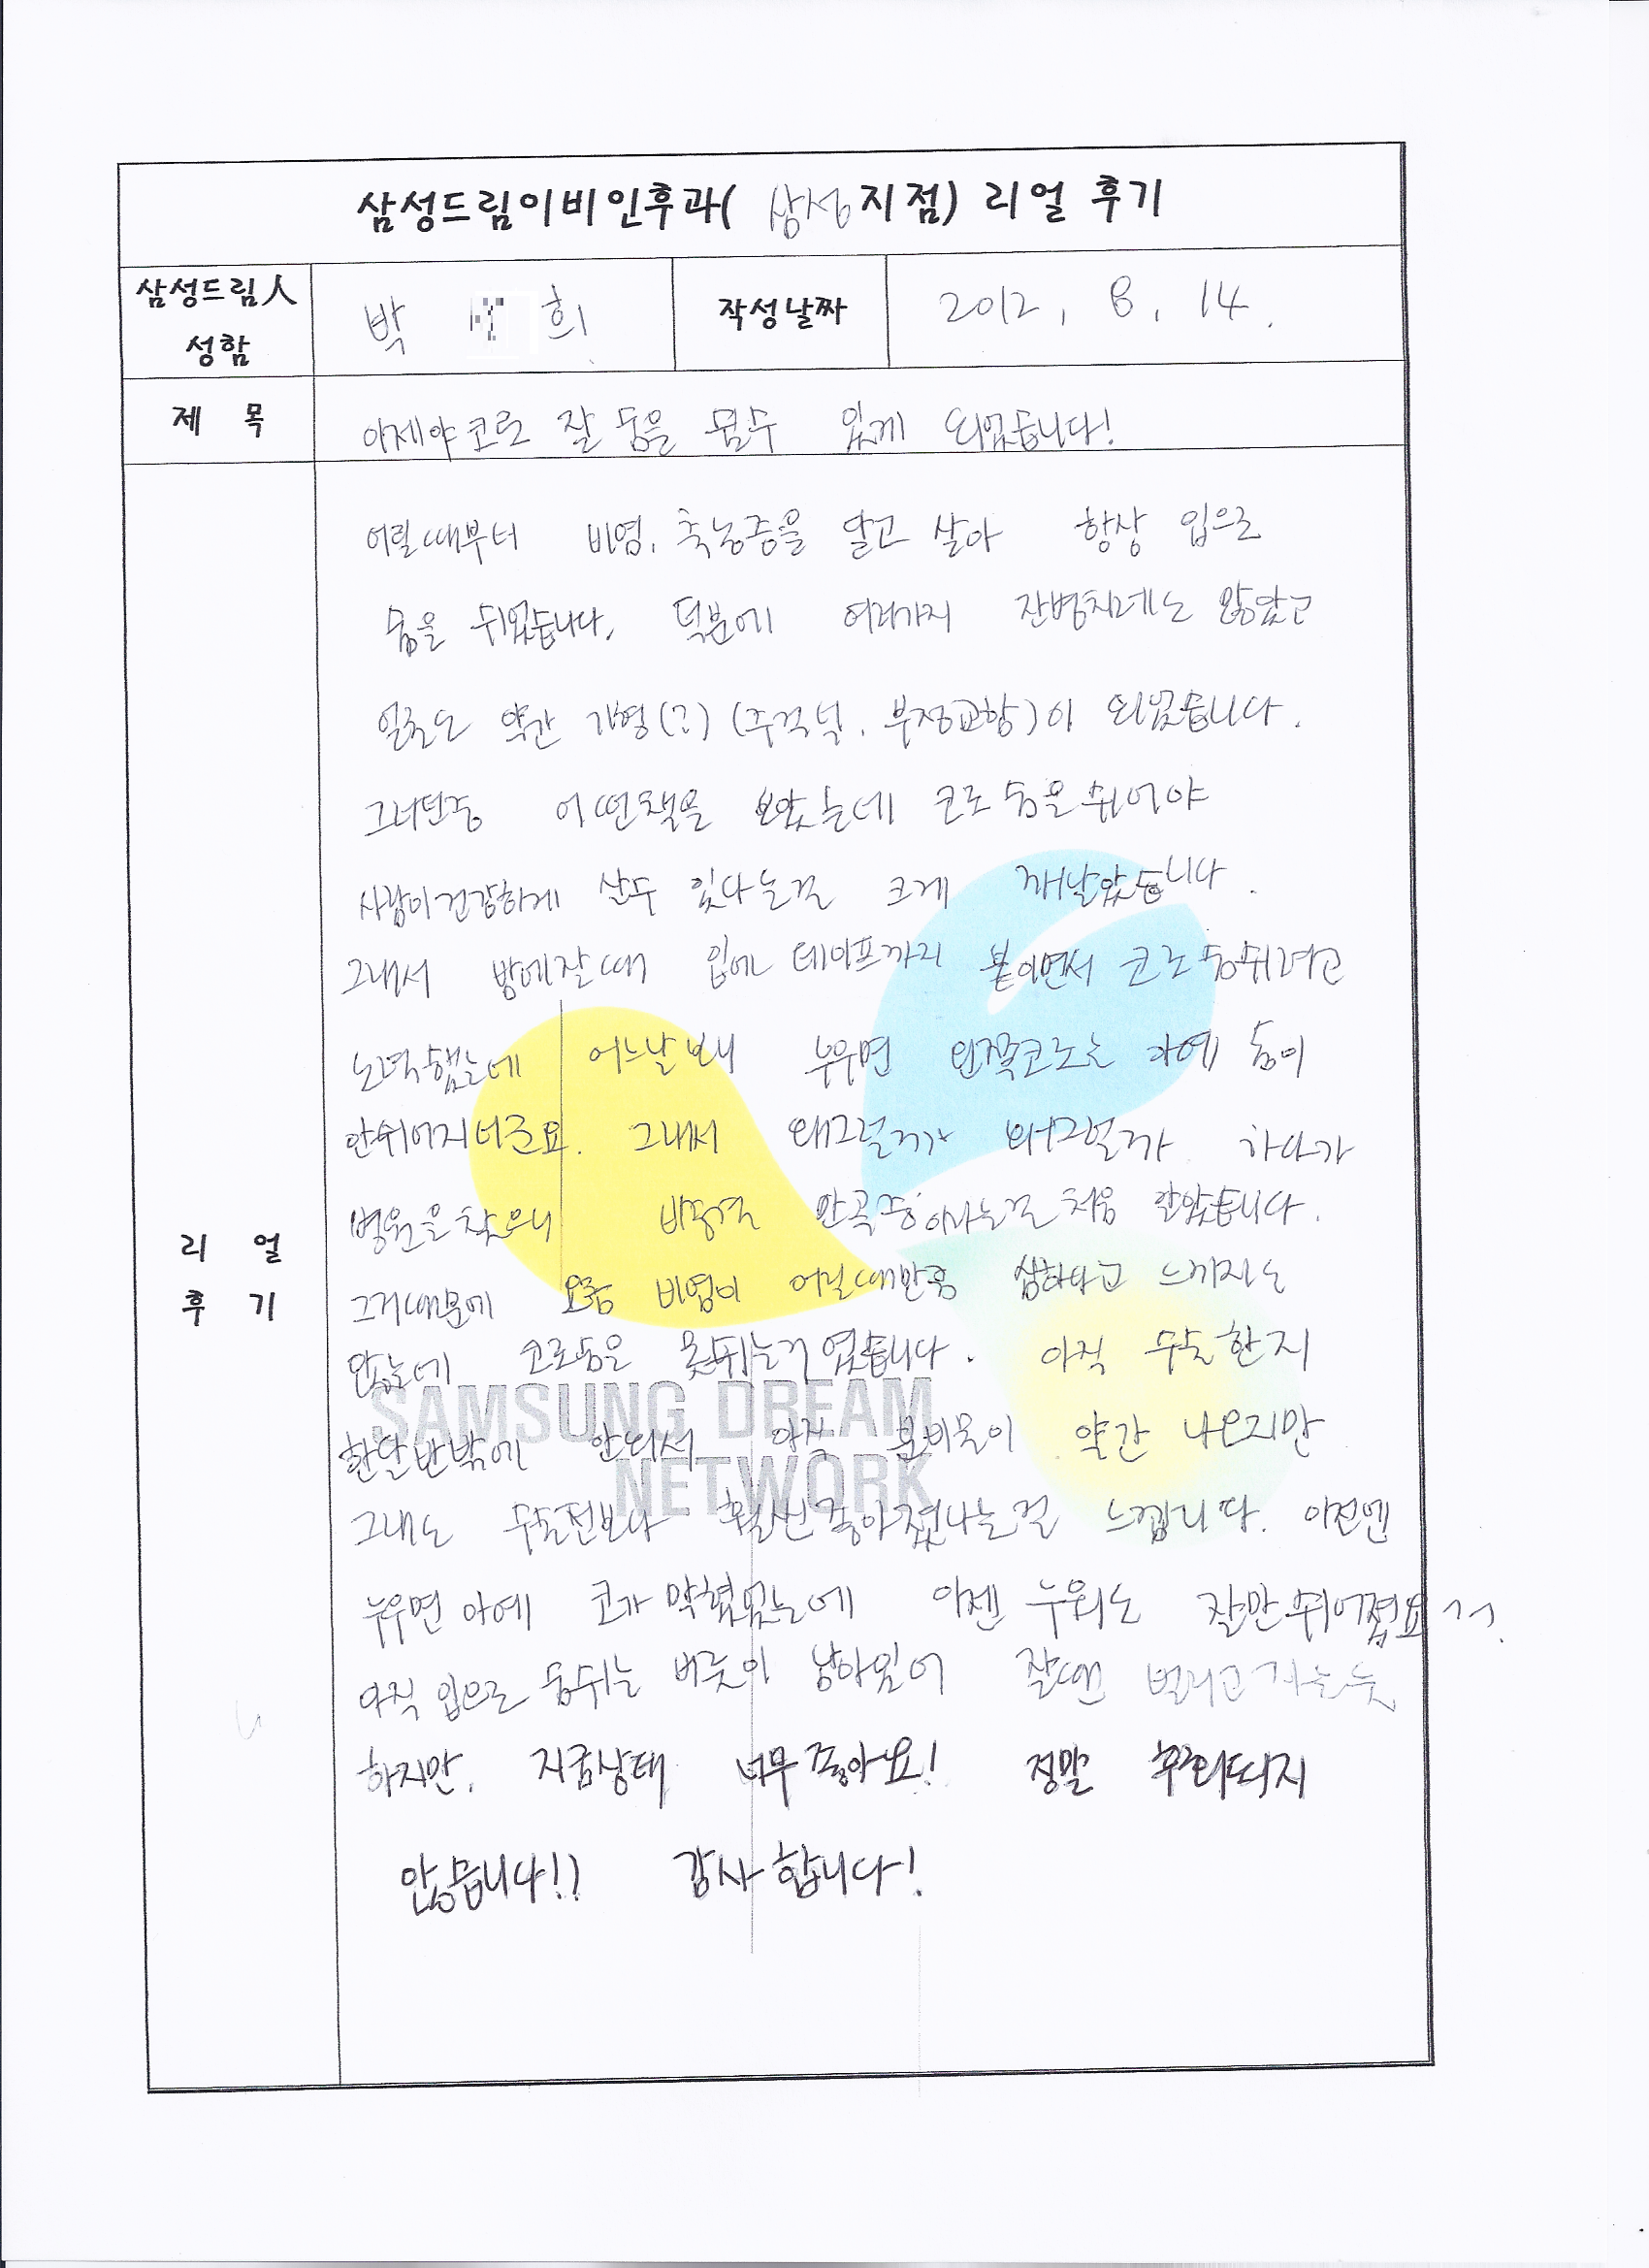 삼성드림이비인후과( 삼성 지점) 리얼 후기
삼성드림人
성함
박 희
작성날짜
2012. 8. 14.
제 목
이제야 코로 잘 숨을 쉴수 있게 되었습니다!
어릴때부터 비염, 축농증을 달고 살아 항상 입으로
숨을 쉬었습니다. 덕분에 여러가지 잔병치레는 많았고
얼굴도 약간 기형(?) (주걱턱, 부정교합)이 되었습니다.
그러던중 어떤책을 보았는데 코로 숨을 쉬어야
사람이 건강하게 살수 있다는걸 크게 깨달았습니다.
그래서 밤에 잘때 입에 테이프까지 붙이면서 코로 숨쉬려고
노력했는데 어느날보니 누우면 왼쪽코로는 아예 숨이
안쉬어지더군요. 그래서 왜그럴까 왜그럴까 하다가
병원을 찾으니 비중격 만곡증이라는걸 처음 알았습니다.
그거때문에 요즘 비염이 어릴때만큼 심하다고 느끼지는
않는데 코로숨은 못쉬는거 였습니다. 아직 수술한지
한달반밖에 안되서 아직 콧물이 약간 나오지만
그래도 수술전보다 훨씬 좋아졌다는걸 느낍니다. 이전엔
누우면 아예 코가 막혔었는데 이젠 누워도 잘만 쉬어졌요~~.
아직 입으로 숨쉬는 버릇이 남아있어 잘땐 벌리고 자는듯
하지만, 지금상태 너무 좋아요! 정말 후회되지
않습니다!? 감사합니다!
리 얼
후 기
SAMSUNG DREAM
NETWORK